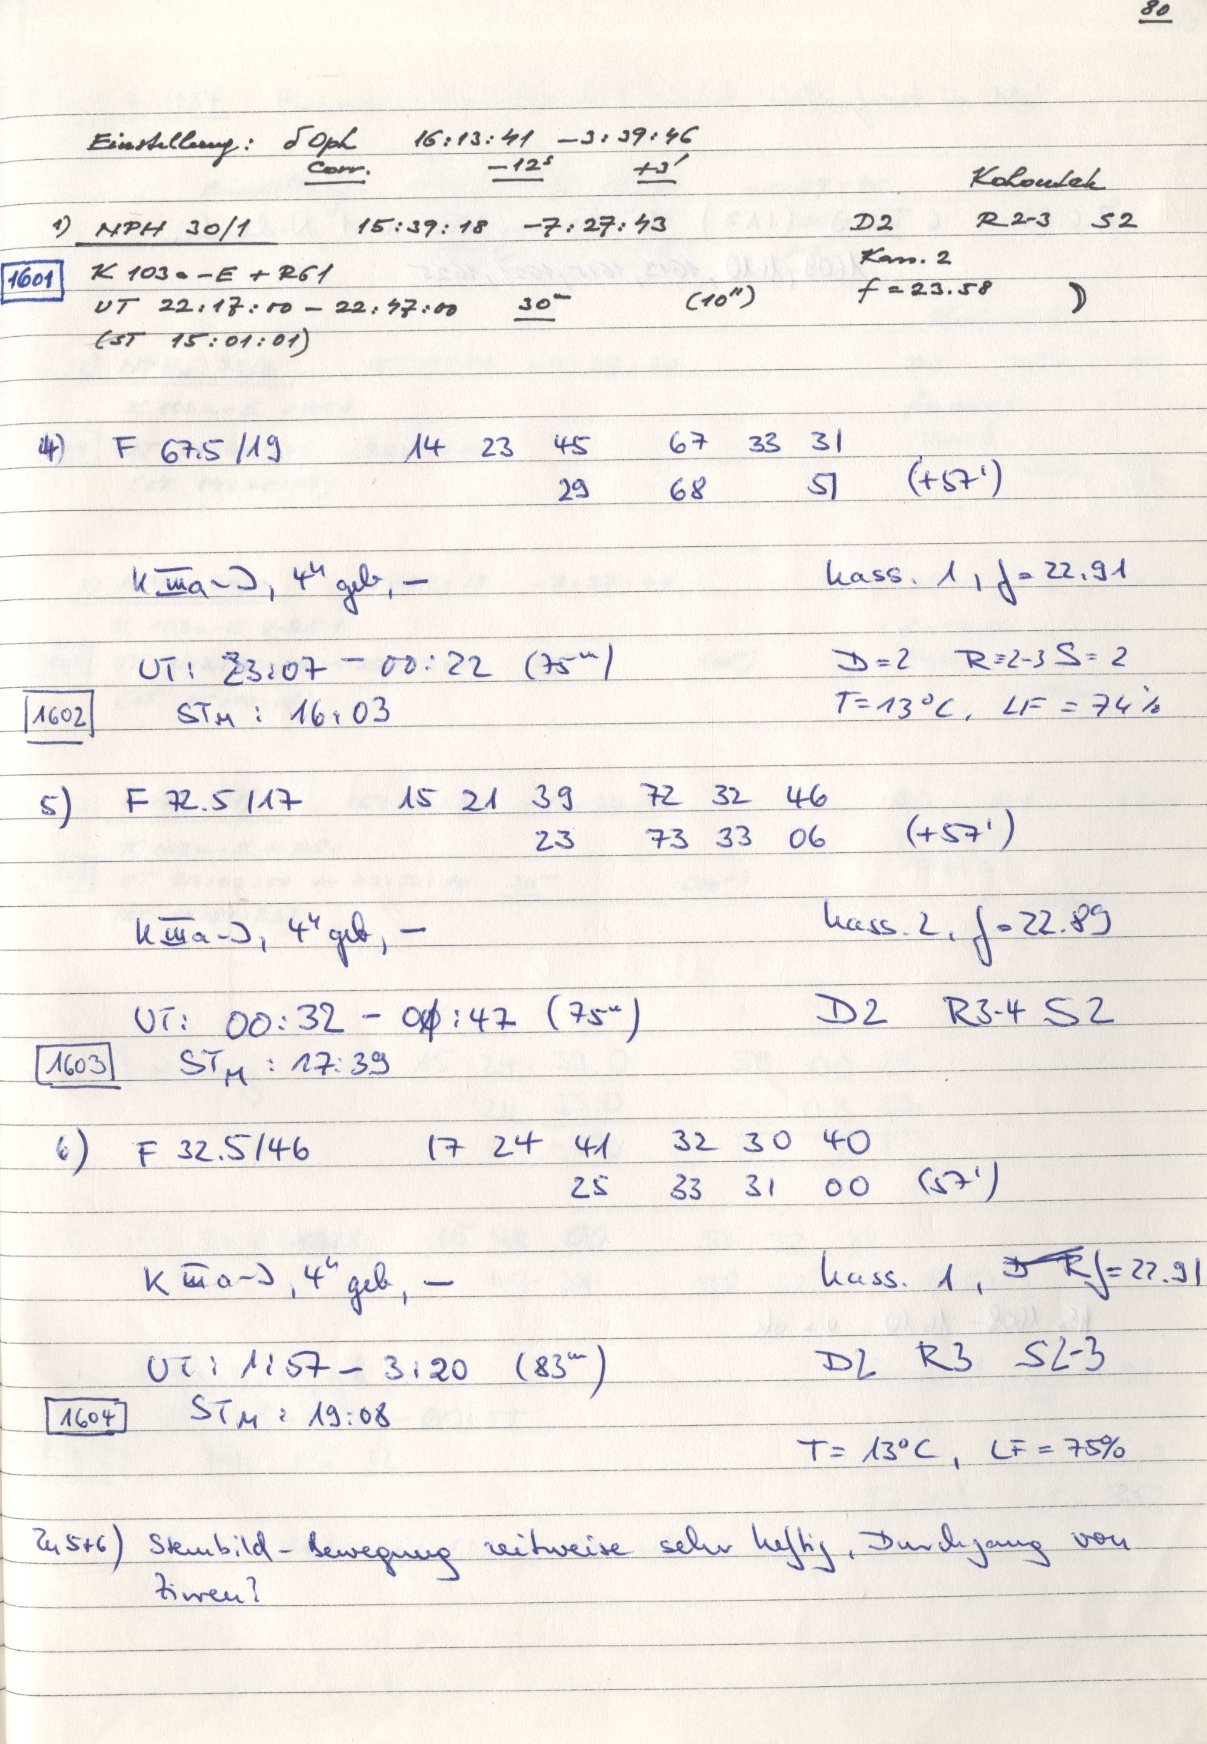 80
Einstellung: δ Oph 16:13:41 -3:39:46
Corr. -12ˢ +3'
Kohoutek
1) MPH 30/1 15:39:18 -7:27:43 D2 R2-3 S2
1601 K 103a-E + R61 Kass. 2
UT 22:17:00 - 22:47:00 30ᵐ (10") f = 23.58
(ST 15:01:01)
4) F 67.5/19 14 23 45 67 33 31
29 68 51 (+57')
K IIIa-J, 4ʰ geb, — Kass. 1, f = 22.91
UT: 23:07 - 00:22 (75ᵐ) D=2 R=2-3 S=2
1602 STM: 16:03 T=13°C, LF = 74%
5) F 72.5/17 15 21 39 72 32 46
23 73 33 06 (+57')
K IIIa-J, 4ʰ geb, — Kass. 2, f = 22.89
UT: 00:32 - 01:47 (75ᵐ) D2 R3-4 S2
1603 STM: 17:39
6) F 32.5/46 17 24 41 32 30 40
25 33 31 00 (57')
K IIIa-J, 4ʰ geb, — Kass. 1, D R f = 22.91
UT: 1:57 - 3:20 (83ᵐ) D2 R3 S2-3
1604 STM: 19:08
T = 13°C, LF = 75%
Zu 5+6) Sternbild-Bewegung zeitweise sehr heftig, Durchgang von
Zirren?